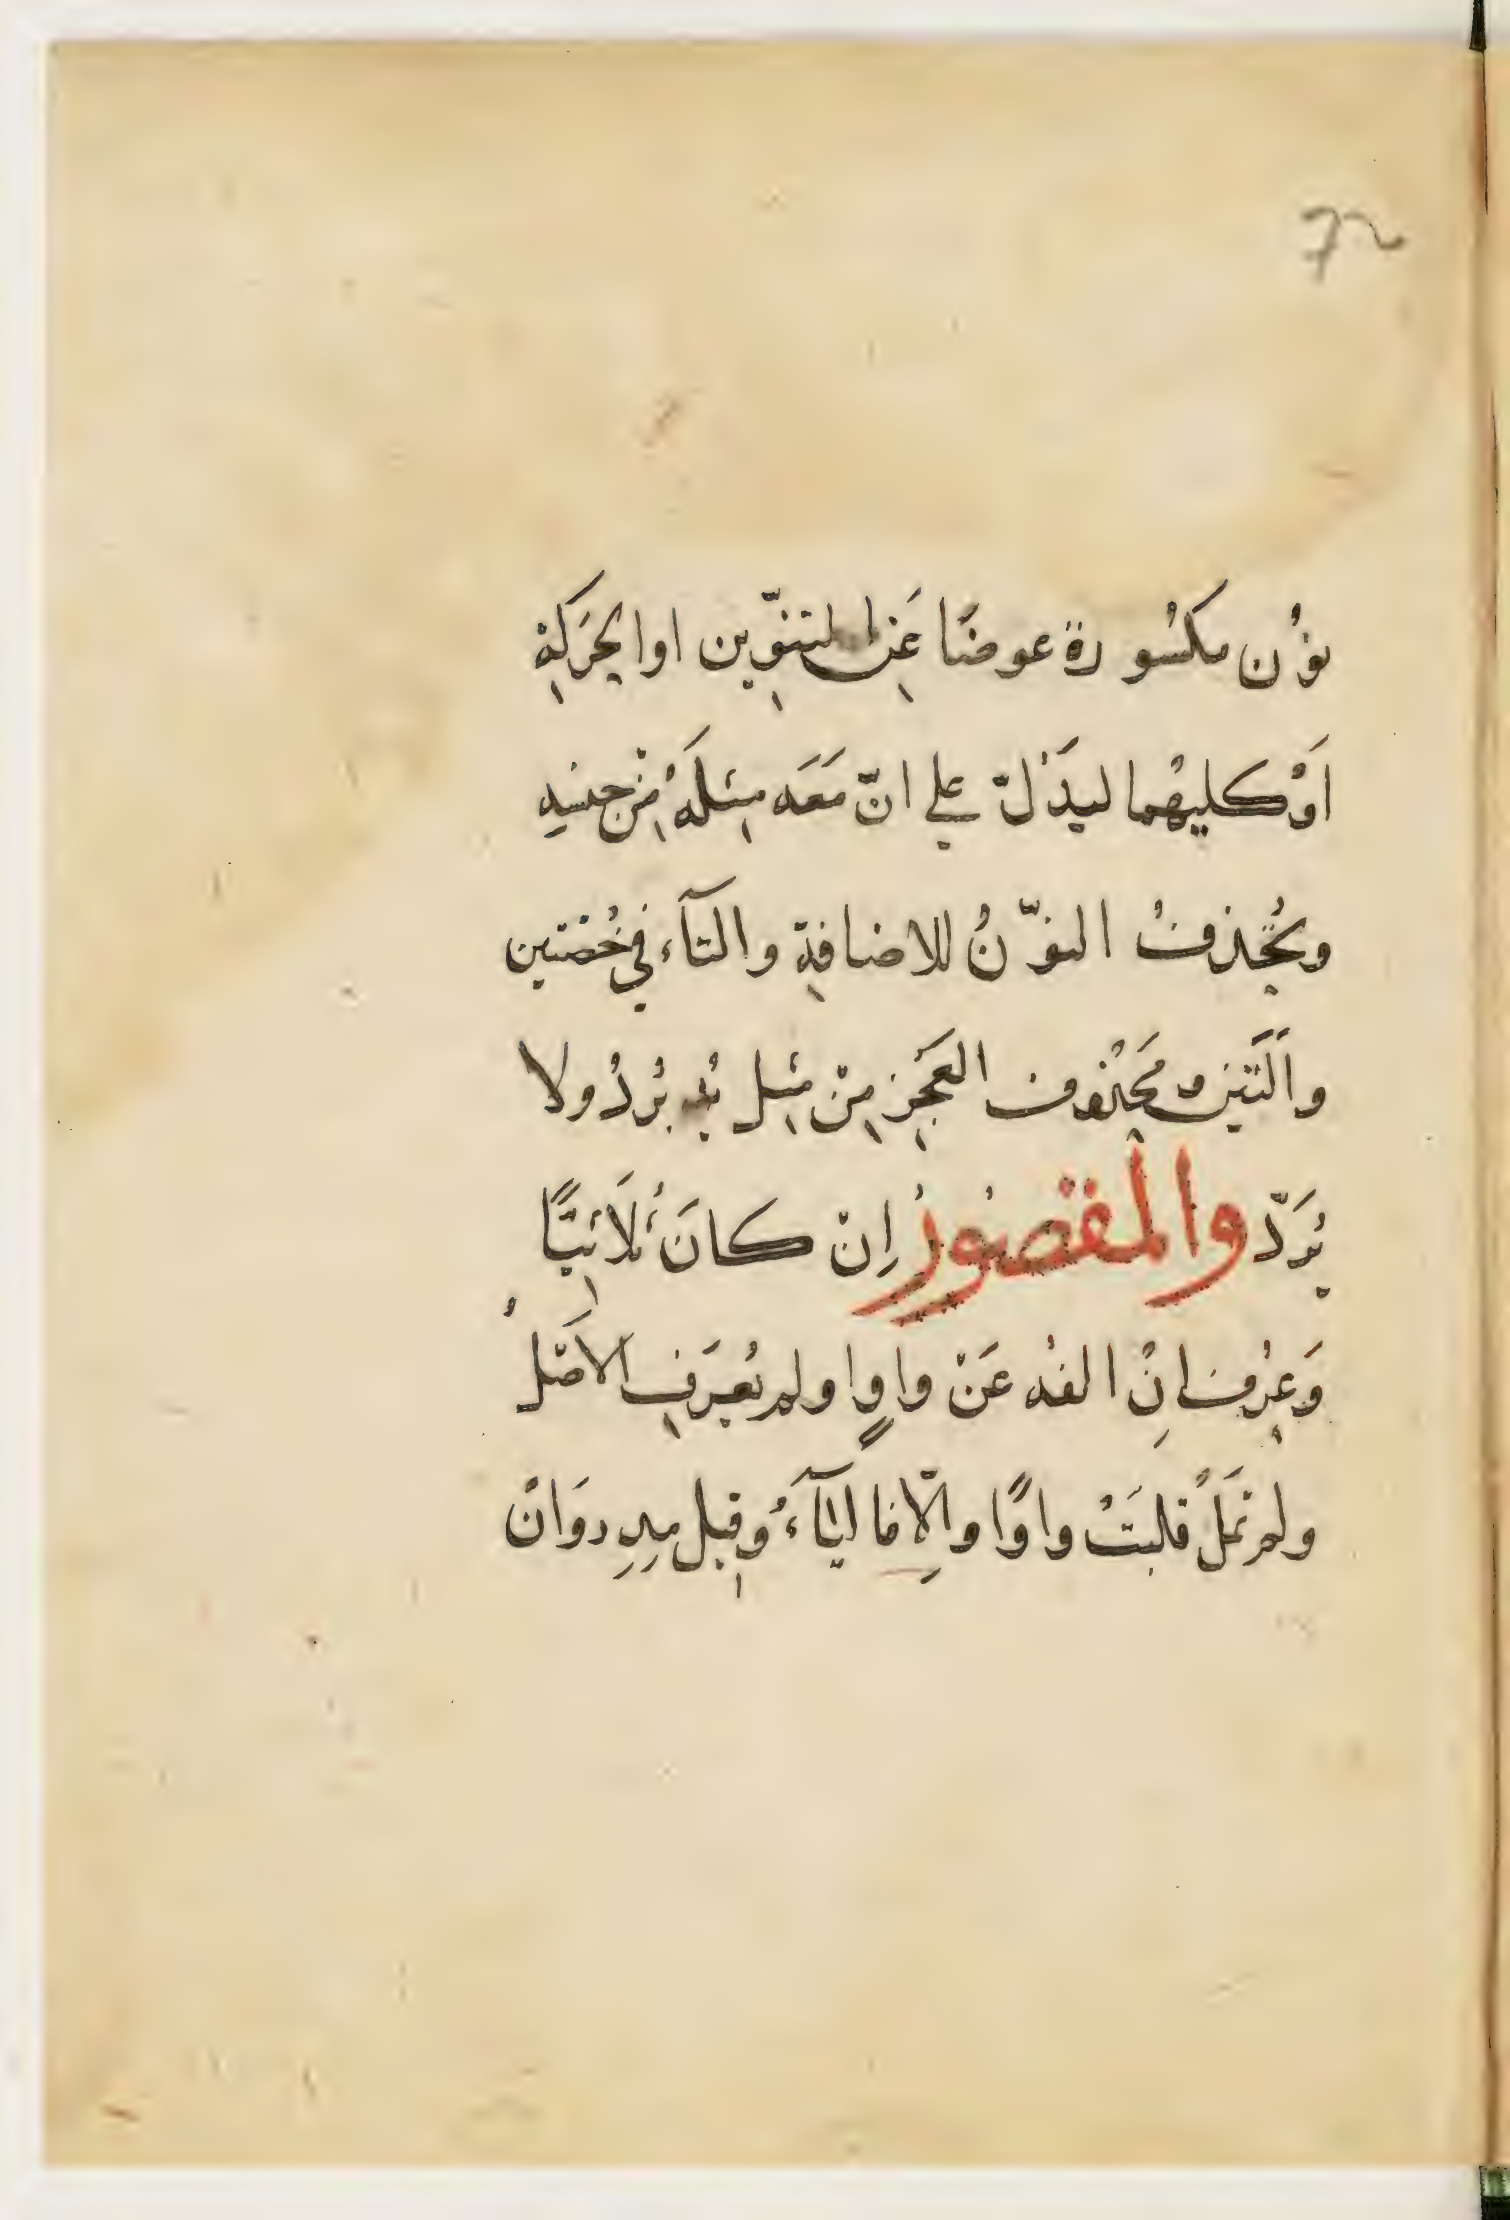 نُوْن مكسُورة عوضًا عَنِ التنوّين او الحرَكةِ
اَوْ كليهُما ليدَُلّ علي انّ مَعَه مِثلَهُ مِنْ جنسِهِ
ويُحْذفُ النوّنُ للاضافةِ والتآء في خُصْتين
واَلَتَين ومَحْذوف العَجُزِ مِنْ مِثل يُرَدُّ ولا
يُرَدّ والمقصُورُ اِنْ كانَ ثُلَاثِيًّا
وَعُرِف انِْ الفُه عَنْ واوٍ اولم يُعرَفِ الاَصْلُ
ولم تُمَلْ قلبَتْ واوًا والّاِفا ليَآءُ وقِيل مِدِروَانْ